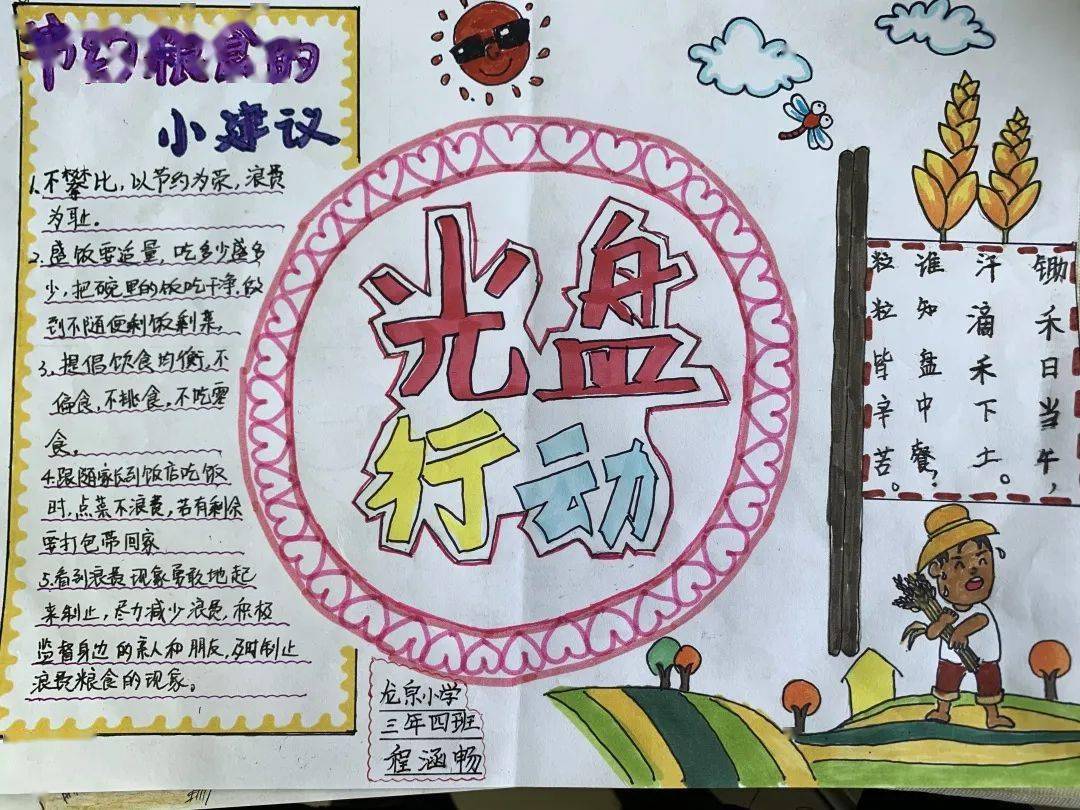 节约粮食的
小建议
1.不攀比,以节约为荣,浪费
为耻。
2.盛饭要适量,吃多少盛多
少,把碗里的饭吃干净,做
到不随便剩饭剩菜,
3.提倡饮食均衡,不
偏食,不挑食,不吃零
食。
4.跟随家长到饭店吃饭
时,点菜不浪费,若有剩余
要打包带回家
5.看到浪费现象勇敢地起
来制止,尽力减少浪费,积极
监督身边的亲人和朋友,及时制止
浪费粮食的现象。
光盘
行动
锄禾日当午,
汗滴禾下土。
谁知盘中餐?
粒粒皆辛苦。
龙泉小学
三年四班
程涵畅